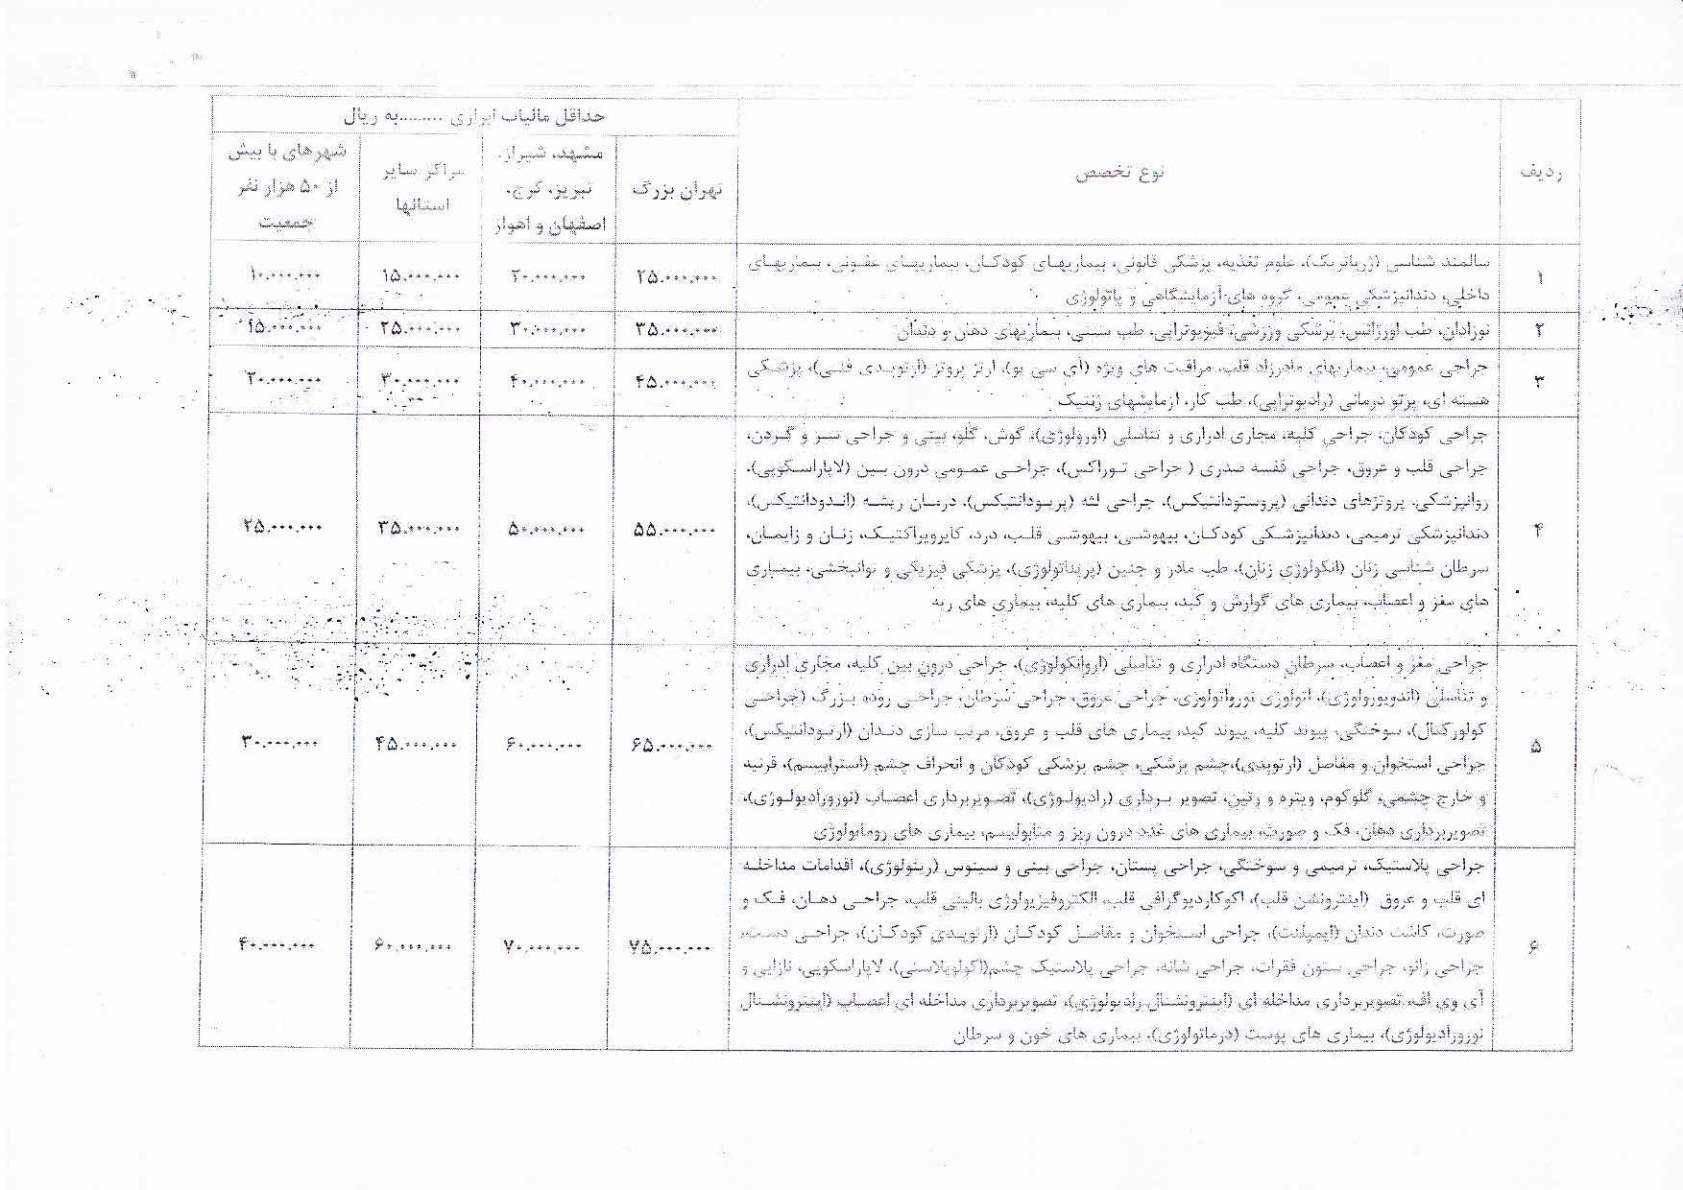 ردیف
نوع تخصص
حداقل مالیات ابرازی .........به ریال
تهران بزرگ
مشهد، شیراز،
تبریز، کرج،
اصفهان و اهواز
مراکز سایر
استانها
شهرهای با بیش
از ۵۰ هزار نفر
جمعیت
۱
سالمند شناسی (ژریاتریک)، علوم تغذیه، پزشکی قانونی، بیماریهای کودکان، بیماریهای عفونی، بیماریهای
داخلی، دندانپزشکی عمومی، گروه های آزمایشگاهی و پاتولوژی
۲۵.۰۰۰.۰۰۰
۲۰.۰۰۰.۰۰۰
۱۵.۰۰۰.۰۰۰
۱۰.۰۰۰.۰۰۰
۲
نوزادان، طب اورژانس، پزشکی ورزشی، فیزیوتراپی، طب سنتی، بیماریهای دهان و دندان
۳۵.۰۰۰.۰۰۰
۳۰.۰۰۰.۰۰۰
۲۵.۰۰۰.۰۰۰
۱۵.۰۰۰.۰۰۰
۳
جراحی عمومی، بیماریهای مادرزاد قلب، مراقبت های ویژه (آی سی یو)، ارتز پروتز (ارتوپدی فنی)، پزشکی
هسته ای، پرتو درمانی (رادیوتراپی)، طب کار، آزمایشهای ژنتیک
۴۵.۰۰۰.۰۰۰
۴۰.۰۰۰.۰۰۰
۳۰.۰۰۰.۰۰۰
۲۰.۰۰۰.۰۰۰
۴
جراحی کودکان، جراحی کلیه، مجاری ادراری و تناسلی (اورولوژی)، گوش، گلو، بینی و جراحی سر و گردن،
جراحی قلب و عروق، جراحی قفسه صدری ( جراحی توراکس)، جراحی عمومی درون بین (لاپاراسکوپی)،
روانپزشکی، پروتزهای دندانی (پروستودانتیکس)، جراحی لثه (پریودانتیکس)، درمان ریشه (اندودانتیکس)،
دندانپزشکی ترمیمی، دندانپزشکی کودکان، بیهوشی، بیهوشی قلب، درد، کایروپراکتیک، زنان و زایمان،
سرطان شناسی زنان (انکولوژی زنان)، طب مادر و جنین (پریناتولوژی)، پزشکی فیزیکی و توانبخشی، بیماری
های مغز و اعصاب، بیماری های گوارش و کبد، بیماری های کلیه، بیماری های ریه
۵۵.۰۰۰.۰۰۰
۵۰.۰۰۰.۰۰۰
۳۵.۰۰۰.۰۰۰
۲۵.۰۰۰.۰۰۰
۵
جراحی مغز و اعصاب، سرطان دستگاه ادراری و تناسلی (اروانکولوژی)، جراحی درون بین کلیه، مجاری ادراری
و تناسلی (اندویورولوژی)، اتولوژی نورواتولوژی، جراحی عروق، جراحی سرطان، جراحی روده بزرگ (جراحی
کولورکتال)، سوختگی، پیوند کلیه، پیوند کبد، بیماری های قلب و عروق، مرتب سازی دندان (ارتودانتیکس)،
جراحی استخوان و مفاصل (ارتوپدی)،چشم پزشکی، چشم پزشکی کودکان و انحراف چشم (استرابیسم)، قرنیه
و خارج چشمی، گلوکوم، ویتره و رتین، تصویر برداری (رادیولوژی)، تصویربرداری اعصاب (نورورادیولوژی)،
تصویربرداری دهان، فک و صورت، بیماری های غدد درون ریز و متابولیسم، بیماری های روماتولوژی
۶۵.۰۰۰.۰۰۰
۶۰.۰۰۰.۰۰۰
۴۵.۰۰۰.۰۰۰
۳۰.۰۰۰.۰۰۰
۶
جراحی پلاستیک، ترمیمی و سوختگی، جراحی پستان، جراحی بینی و سینوس (رینولوژی)، اقدامات مداخله
ای قلب و عروق (اینترونشن قلب)، اکوکاردیوگرافی قلب، الکتروفیزیولوژی بالینی قلب، جراحی دهان، فک و
صورت، کاشت دندان (ایمپلنت)، جراحی استخوان و مفاصل کودکان (ارتوپدی کودکان)، جراحی دست،
جراحی زانو، جراحی ستون فقرات، جراحی شانه، جراحی پلاستیک چشم(اکولوپلاستی)، لاپاراسکوپی، نازایی و
آی وی اف، تصویربرداری مداخله ای (اینترونشنال رادیولوژی)، تصویربرداری مداخله ای اعصاب (اینترونشنال
نورورادیولوژی)، بیماری های پوست (درماتولوژی)، بیماری های خون و سرطان
۷۵.۰۰۰.۰۰۰
۷۰.۰۰۰.۰۰۰
۶۰.۰۰۰.۰۰۰
۴۰.۰۰۰.۰۰۰